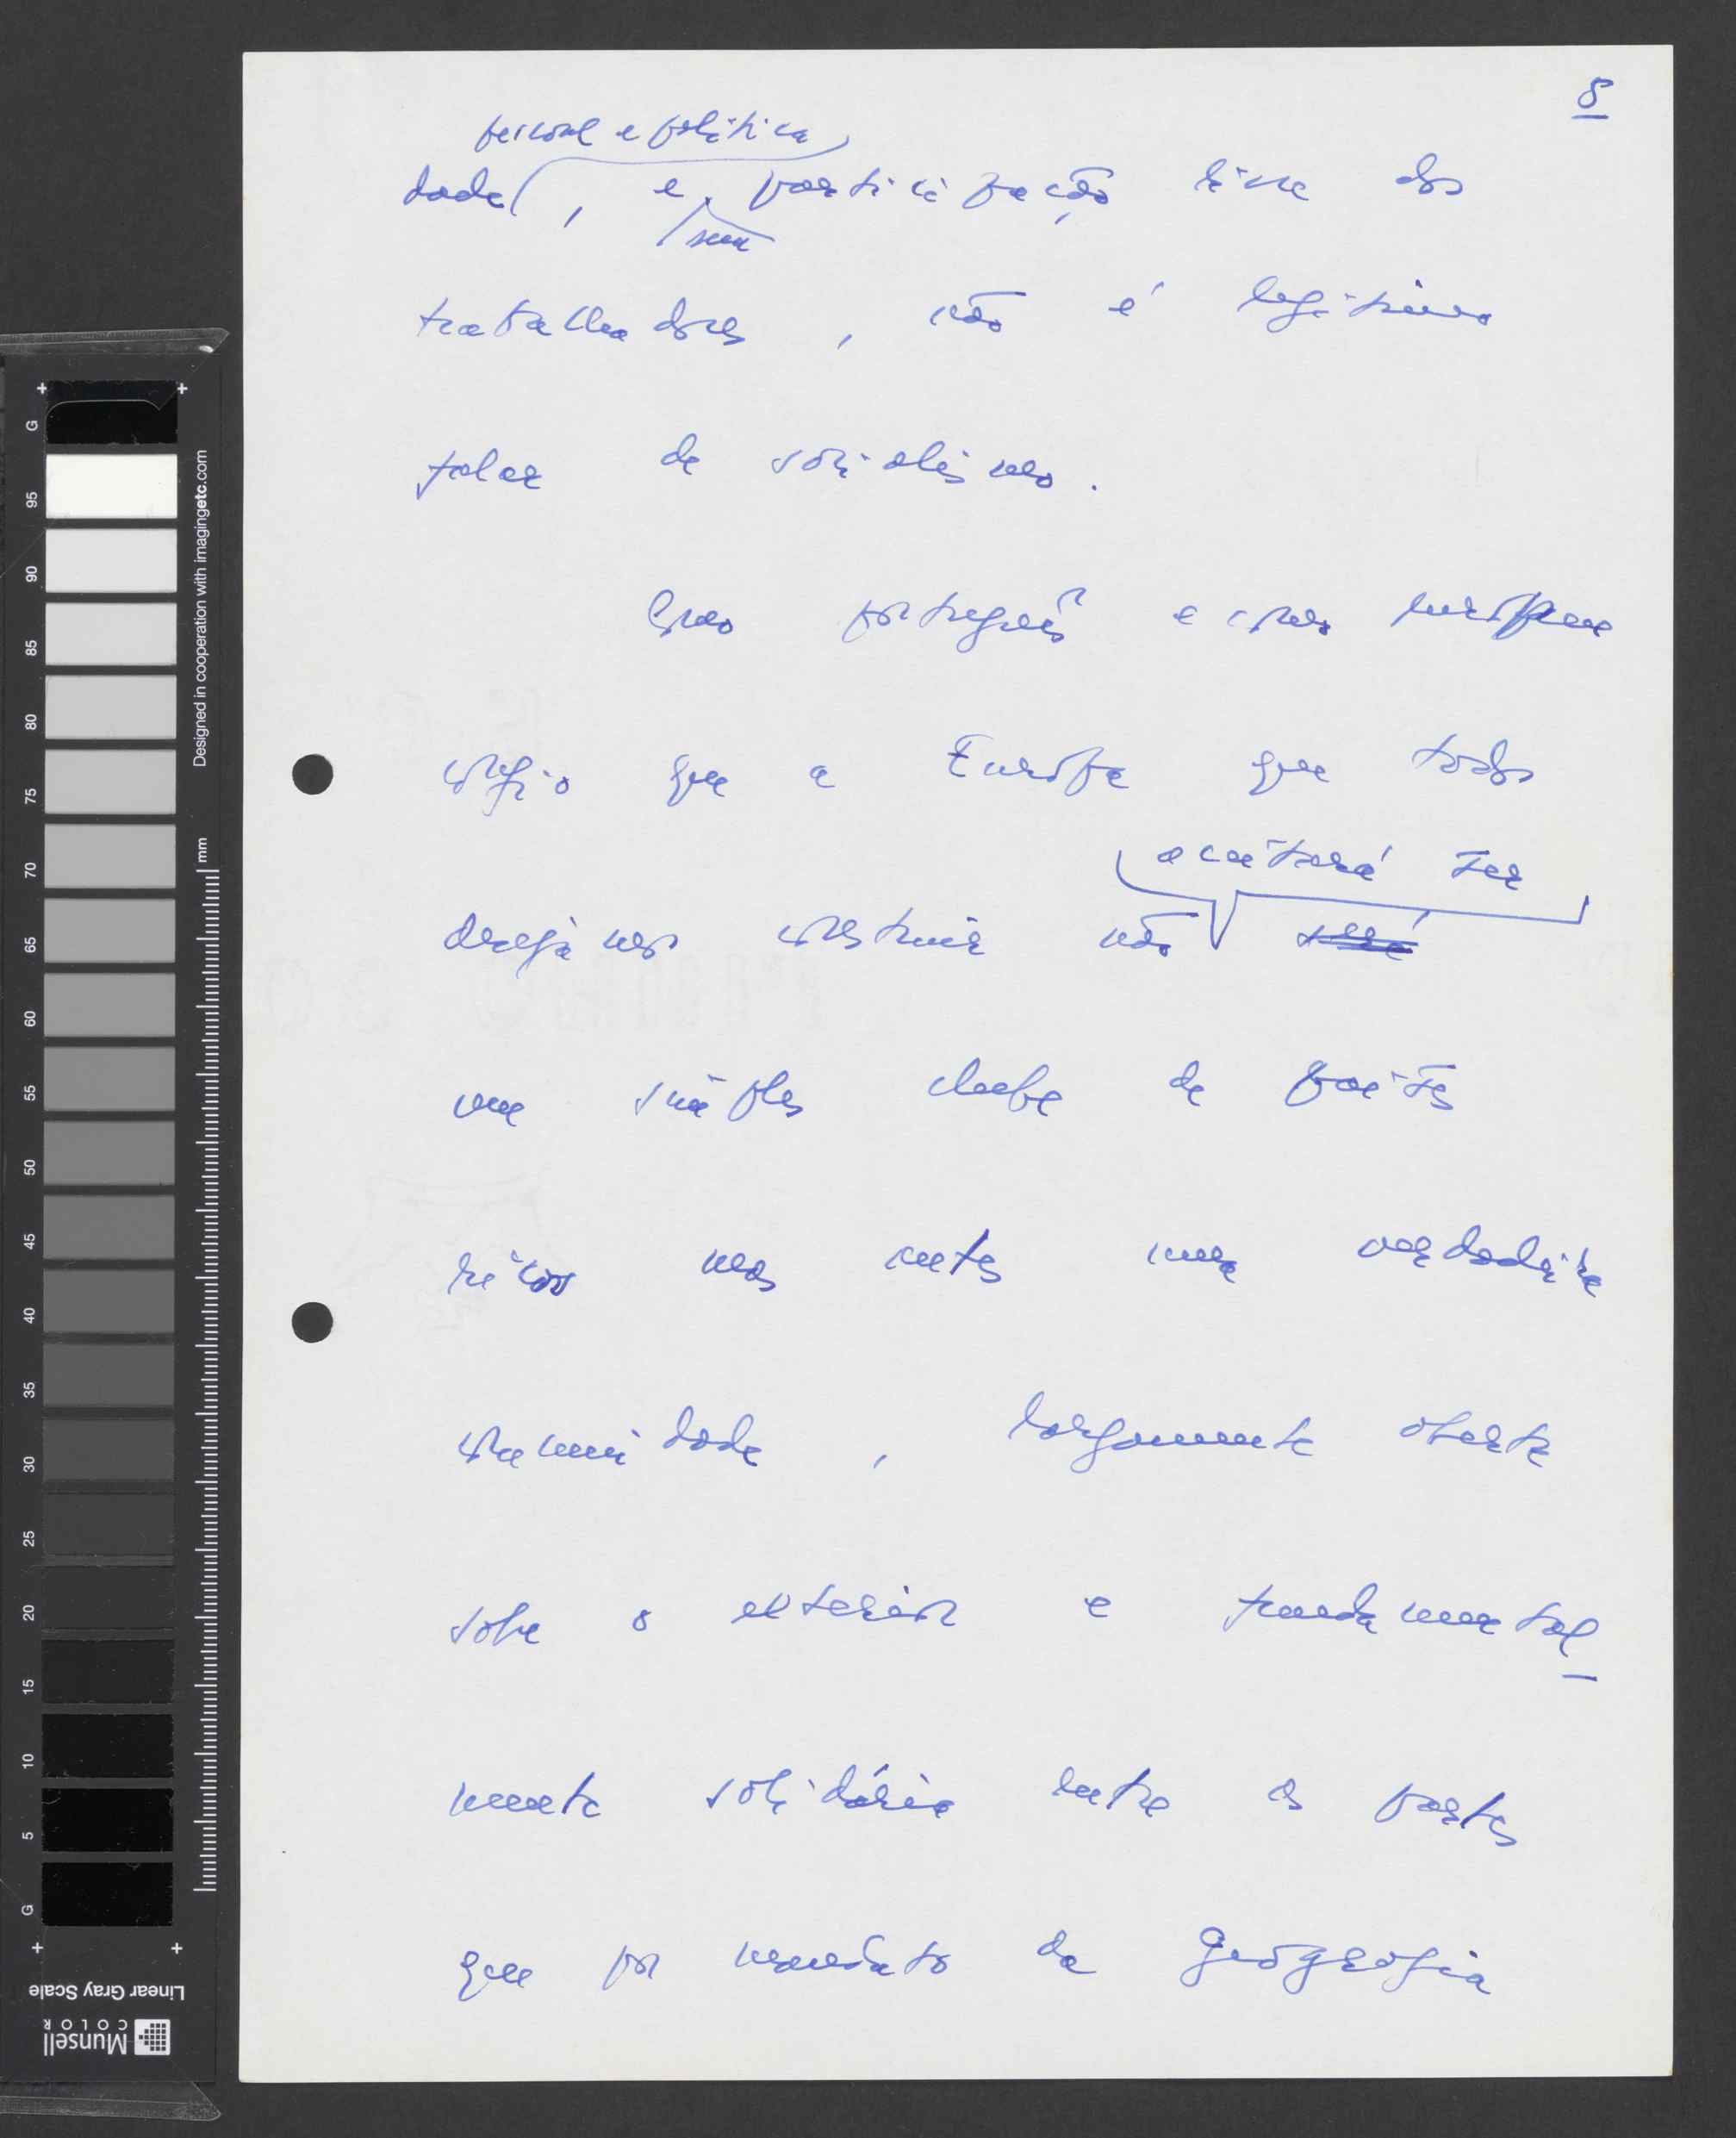 8
pessoal e política
dade, e participação livre dos
sem
trabalhadores, não é legítimo
falar de socialismo.
Como português e como europeu
confio que a Europa que todos
aceitará ser
desejamos construir não será
um simples clube de países
ricos mas antes uma verdadeira
comunidade, largamente aberta
sobre o exterior e fundamental_
mente solidária entre as partes
que por mandato da geografia
G
95
90
85
80
75
70
65
60
55
50
45
40
35
30
25
20
15
10
5
G
mm
Designed in cooperation with imagingetc.com
Linear Gray Scale
Munsell
COLOR